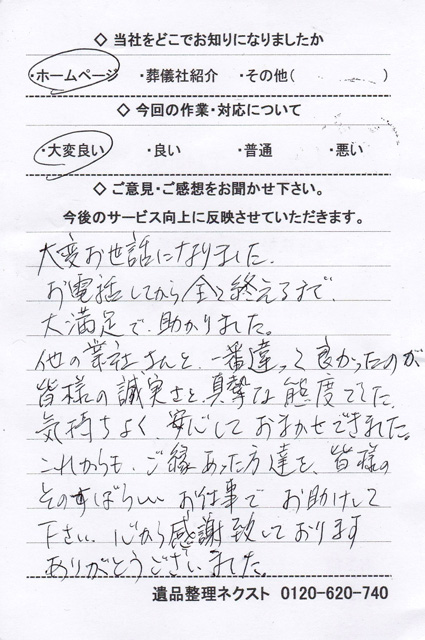 ◇ 当社をどこでお知りになりましたか
・ホームページ ・葬儀社紹介 ・その他( )
◇ 今回の作業・対応について
・大変良い ・良い ・普通 ・悪い
◇ ご意見・ご感想をお聞かせ下さい。
今後のサービス向上に反映させていただきます。
大変お世話になりました.
お電話してから全て終えるまで、
大満足で、助かりました。
他の業社さんと、一番違って良かったのが
皆様の誠実さと、真摯な態度でした.
気持ちよく、安心しておまかせできました。
これからも、ご縁あった方達を、皆様の
そのすばらしい お仕事で お助けして
下さい. 心から感謝致しております
ありがとうございました。
遺品整理ネクスト 0120-620-740